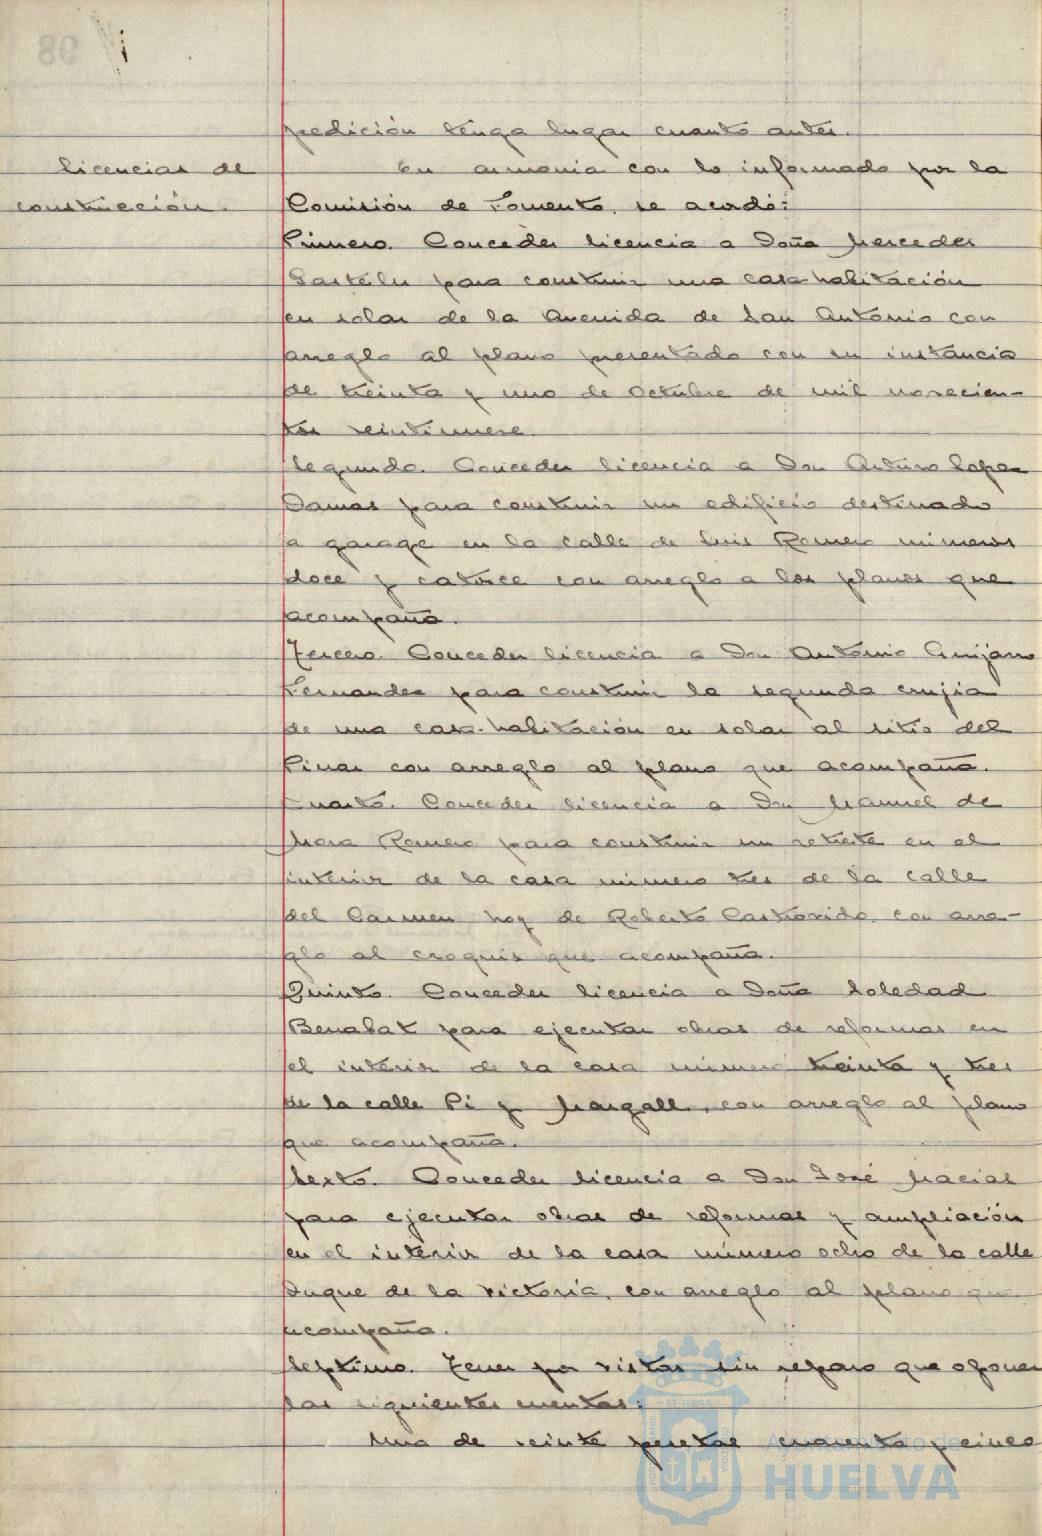 pedición tenga lugar cuanto antes.
Licencias de
construcción.
En armonia con lo informado por la
Comisión de Fomento, se acordó:
Primero. Conceder licencia a Doña Mercedes
para construir una casa-habitación
en solar de la Avenida de San Antonio con
arreglo al plano presentado con su instancia
de treinta y uno de Octubre de mil novecien-
tos veintinueve.
Segundo. Conceder licencia a Don Arturo Lopez
Damas para construir un edificio destinado
a garage en la calle de Luis Romero números
doce y catorce con arreglo a los planos que
acompaña.
Tercero. Conceder licencia a Don Antonio
Fernandez para construir la segunda crujia
de una casa-habitación en solar al sitio del
Pinar con arreglo al plano que acompaña.
Cuarto. Conceder licencia a Don Manuel de
Mora Romero para construir un retrete en el
interior de la casa número tres de la calle
del Carmen hoy de Roberto Castrovido, con arre-
glo al croquis que acompaña.
Quinto. Conceder licencia a Doña Soledad
Benabat para ejecutar obras de reformas en
el interior de la casa número treinta y tres
de la calle Pi y Margall, con arreglo al plano
que acompaña.
Sexto. Conceder licencia a Don José Macias
para ejecutar obras de reformas y ampliación
en el interior de la casa número ocho de la calle
Duque de la Victoria, con arreglo al plano que
acompaña.
Septimo. Tener por vistas sin reparo que oponer
las siguientes cuentas:
Una de veinte pesetas cuarenta y cinco
Ayuntamiento de
HUELVA